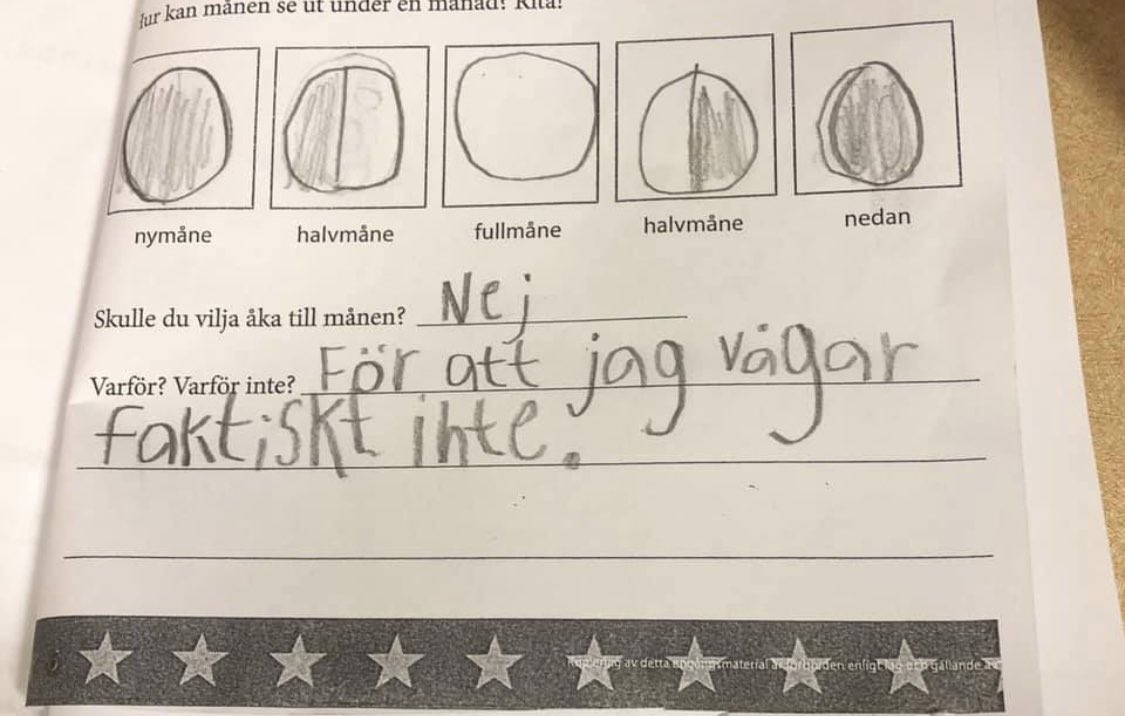 Hur kan månen se ut under en månad? Rita!
nymåne
halvmåne
fullmåne
halvmåne
nedan
Skulle du vilja åka till månen? Nej
Varför? Varför inte? För att jag vågar
faktiskt ihte.
Kopiering av detta engångsmaterial är förbjuden enligt lag och gällande av